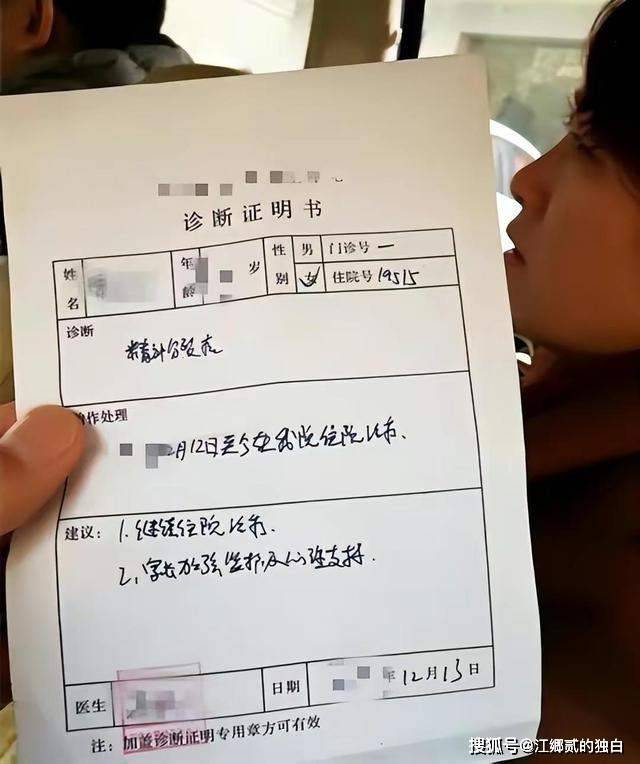 诊断证明书
姓名 年龄 岁 性别 男 女 门诊号 一
住院号 19515
诊断
精神分裂症
作处理
月12日至今在我院住院治疗、
建议: 1. 继续住院治疗.
2. 家长加强监护及心理支持.
医生 日期 年12月13日
注: 加盖诊断证明专用章方可有效
搜狐号@江鄉贰的独白